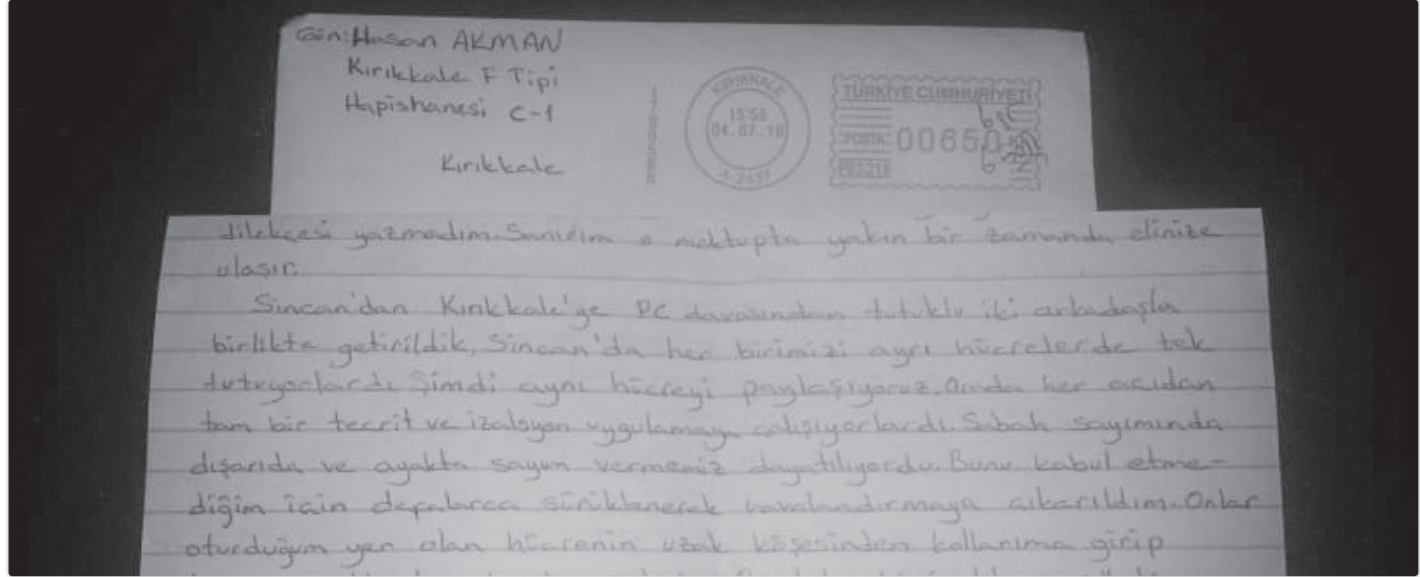 Gön: Hasan AKMAN
Kırıkkale F Tipi
Hapishanesi C-1
Kırıkkale
KIRIKKALE
15:55
04.07.18
TÜRKİYE CUMHURİYETİ
POSTA
00650
dilekçesi yazmadım. Sanırım o mektupta yakın bir zamanda elinize
ulaşır.
Sincan'dan Kırıkkale'ye PC davasından tutuklu iki arkadaşla
birlikte getirildik, Sincan'da her birimizi ayrı hücrelerde tek
tutuyorlardı. Şimdi aynı hücreyi paylaşıyoruz. Orada her açıdan
tam bir tecrit ve izalsyon uygulamaya çalışıyorlardı. Sabah sayımında
dışarıda ve ayakta sayım vermemiz dayatılıyordu. Bunu kabul etme-
diğim için defalarca sürüklenerek havalandırmaya çıkarıldım. Onlar
oturduğum yer olan hücrenin uzak köşesinden kollarıma girip